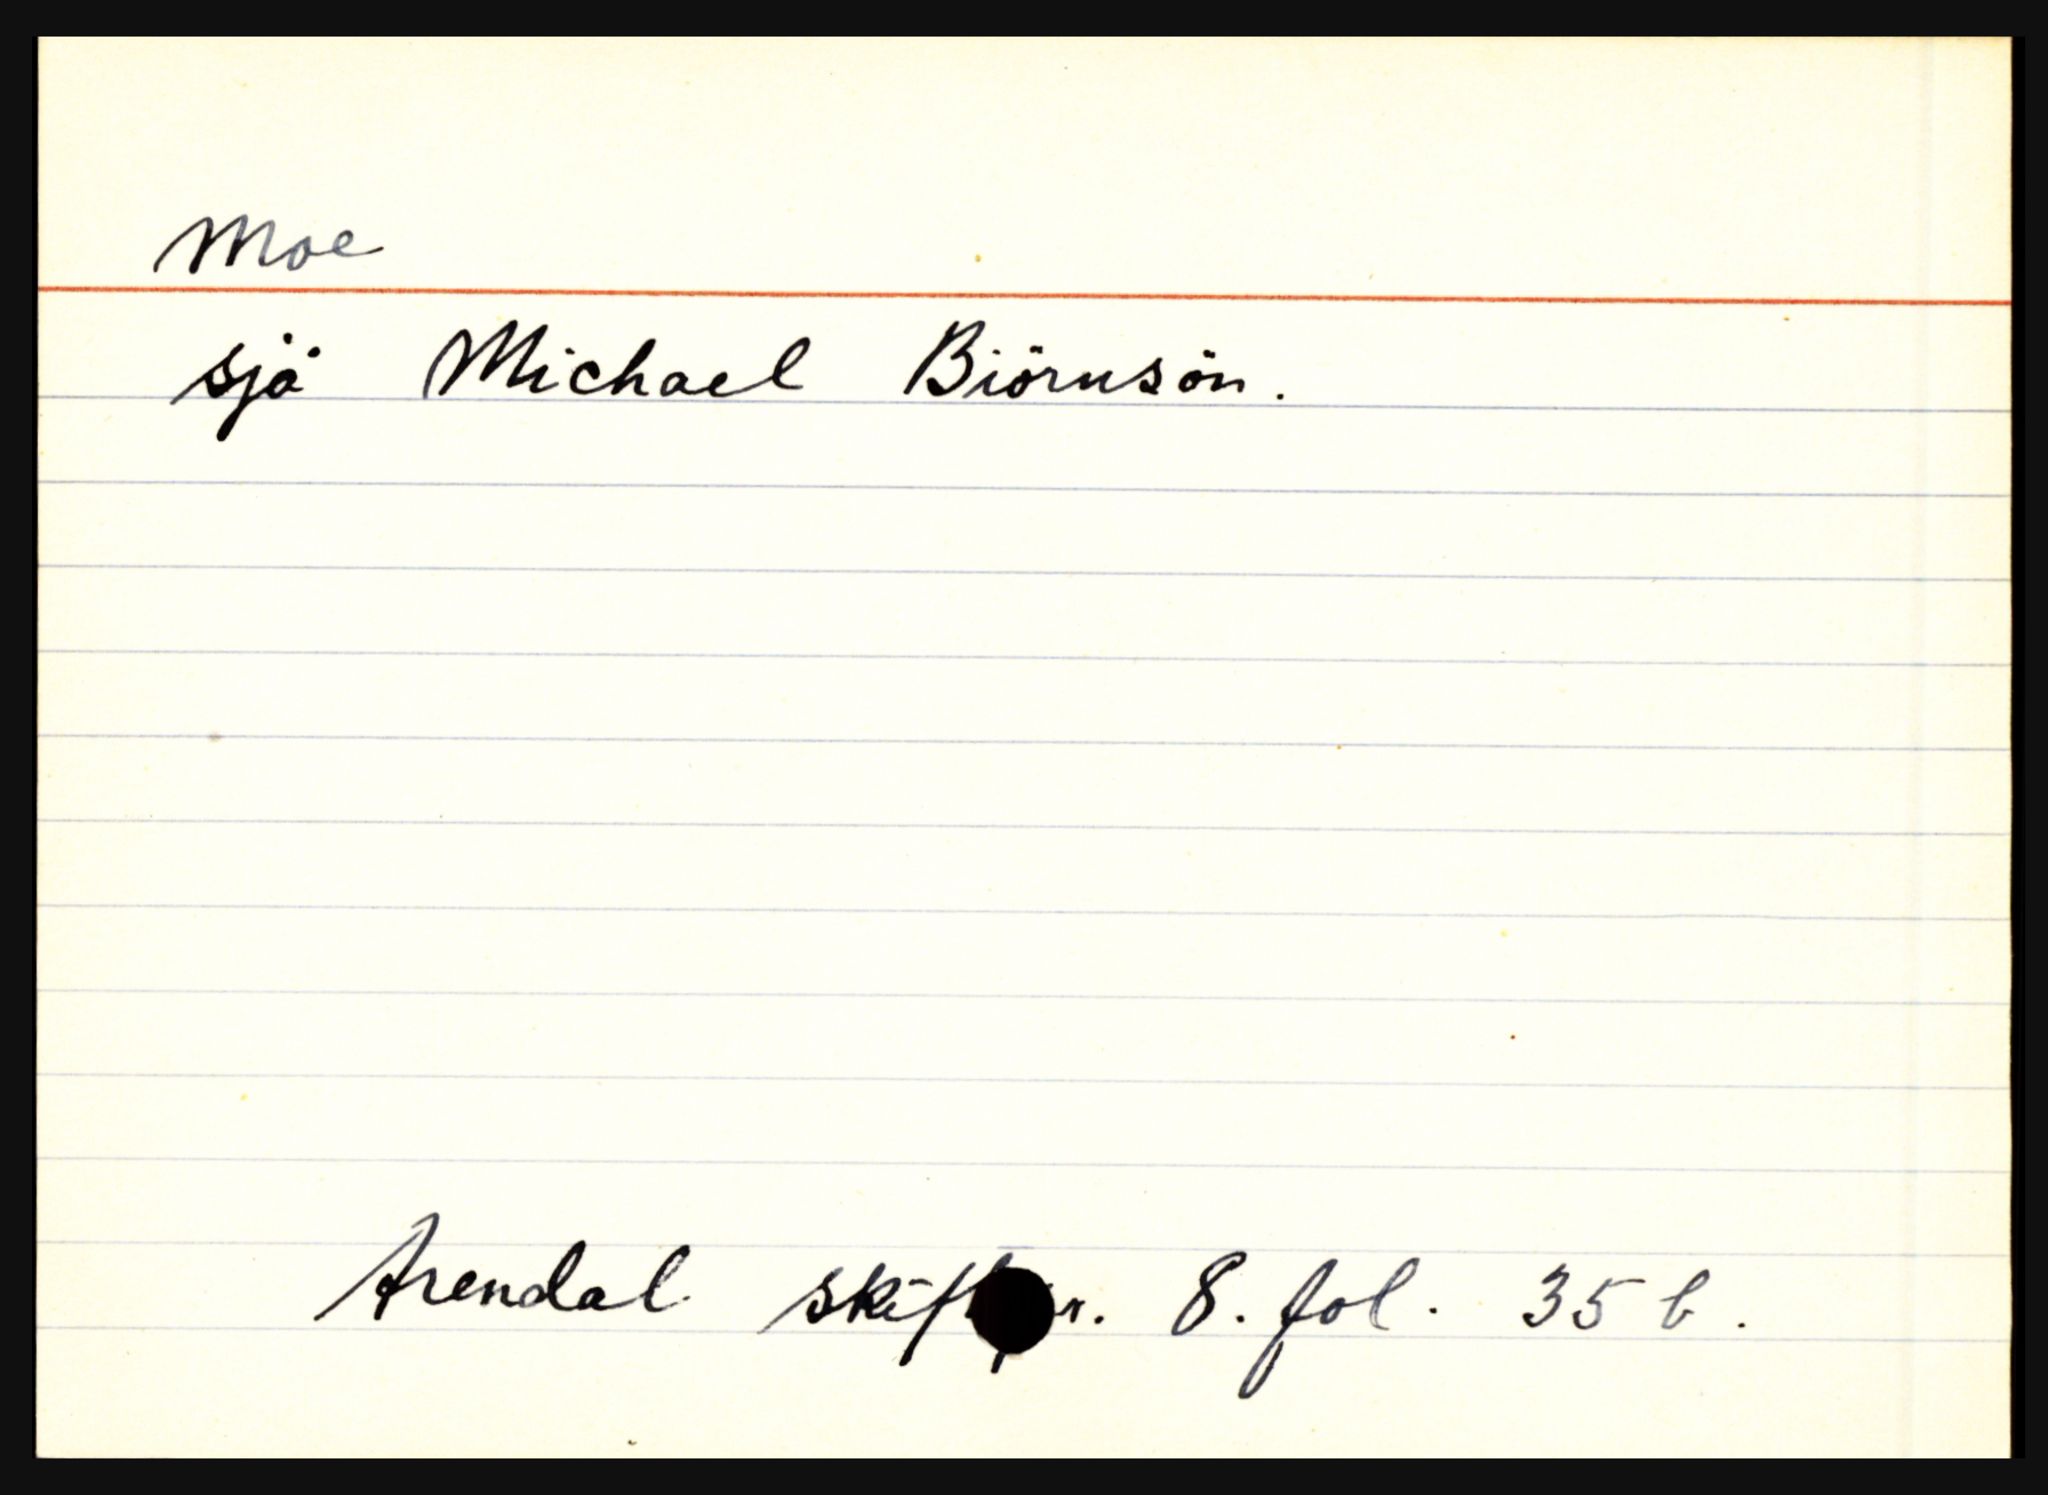 Moe
sjå Michael Biörnsön.
Arendal 8. fol. 35 b.